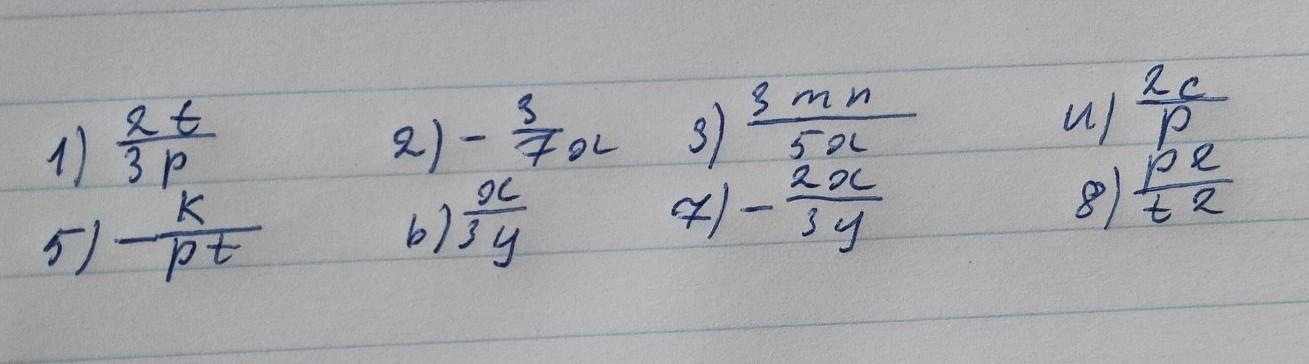 1) 2t/3p 2) - 3/7x 3) 3mn/5x 4) 2c/p
5) - k/pt 6) x/3y 7) - 2x/3y 8) p2/t2